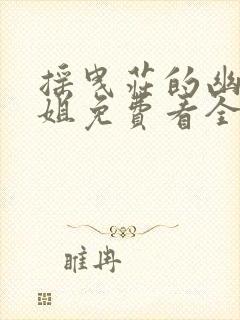 採曳莊的幽
姐免費看全
睢冉